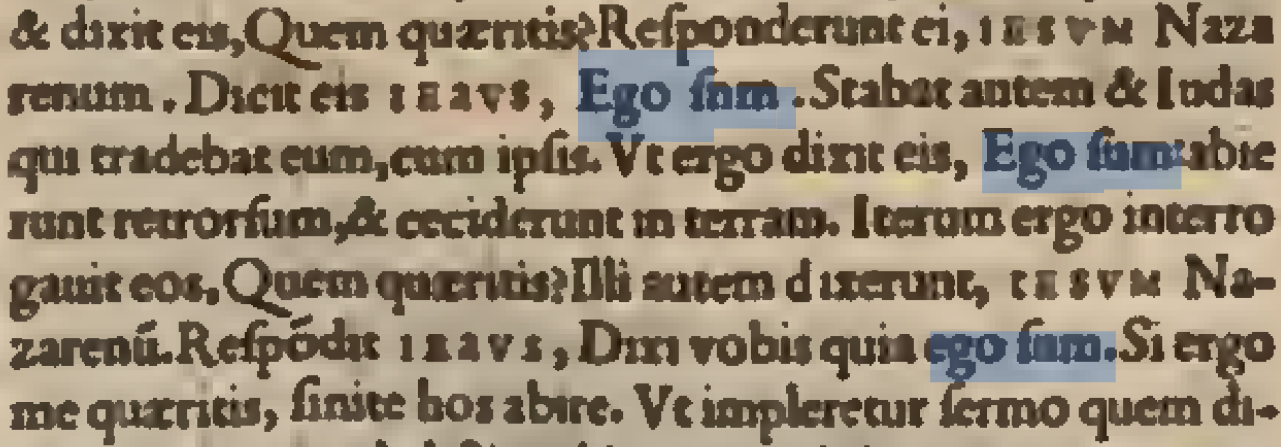 & dixit eis, Quem quæritis? Reſponderunt ei, IESVM Naza
renum. Dicit eis IESVS, Ego ſum. Stabat autem & Iudas
qui tradebat eum, cum ipſis. Vt ergo dixit eis, Ego ſum: abie
runt retrorſum, & ceciderunt in terram. Iterum ergo interro
gauit eos, Quem quæritis? Illi autem dixerunt, IESVM Na-
zarenū. Reſpōdit IESVS, Dixi vobis quia ego ſum. Si ergo
me quæritis, ſinite hos abire. Vt impleretur ſermo quem di-